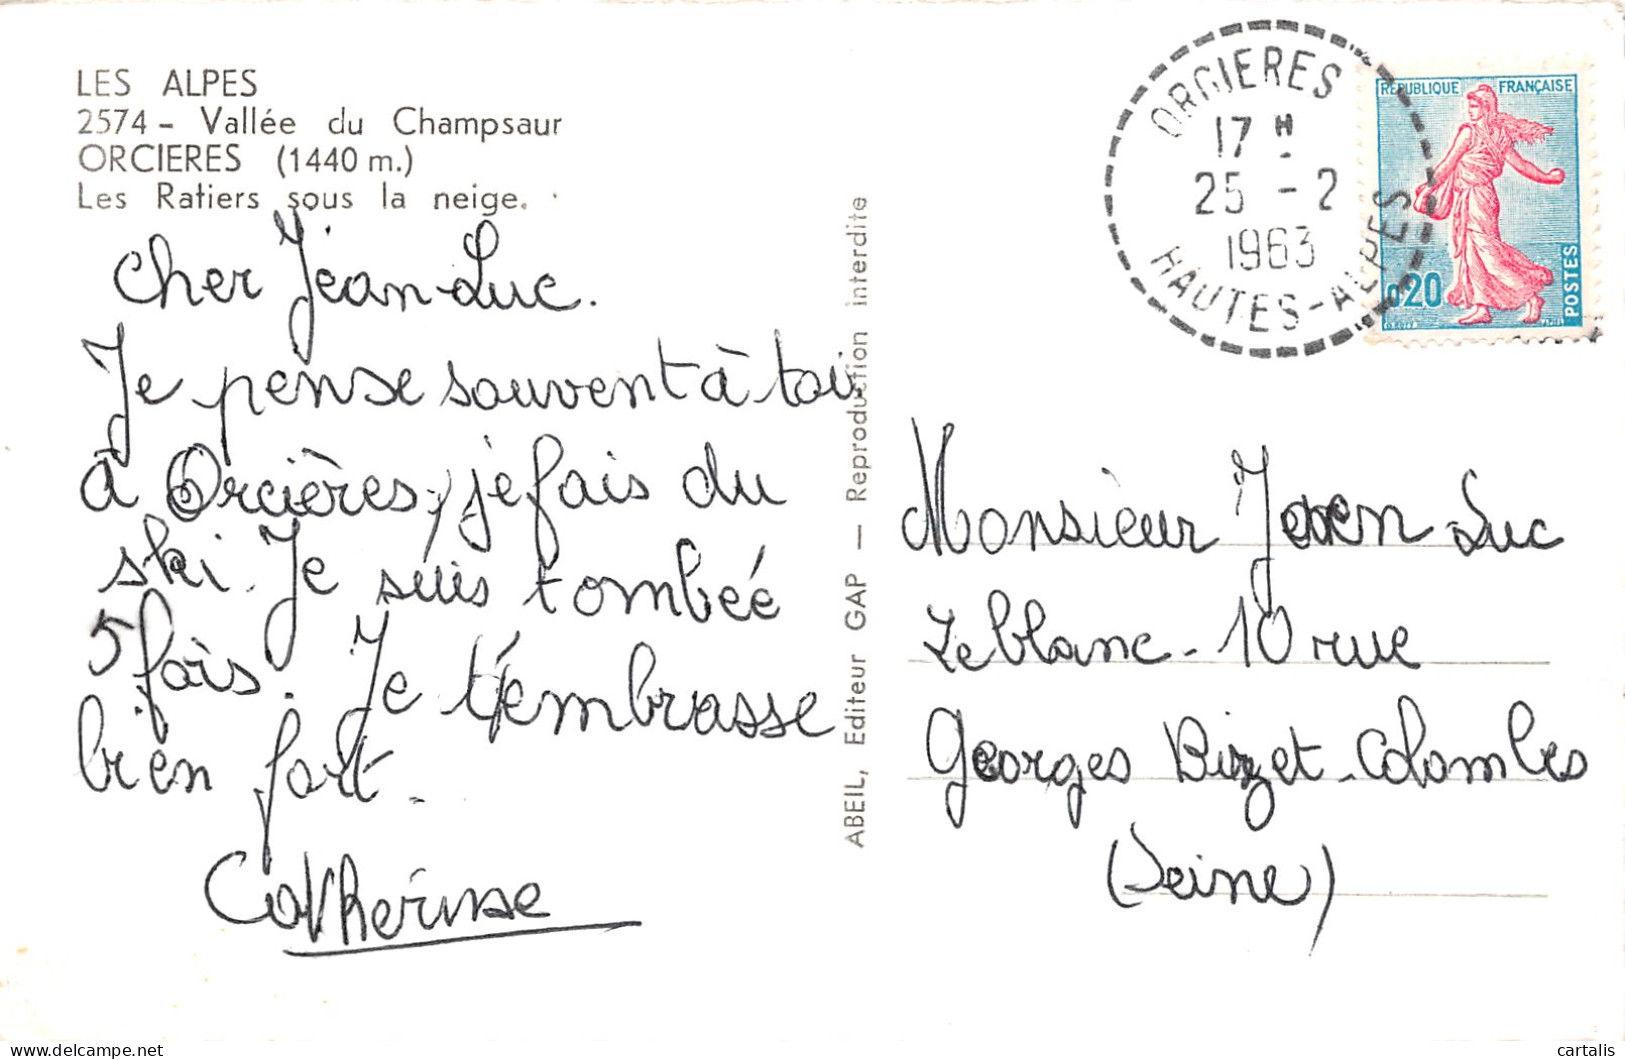 LES ALPES
2574 - Vallée du Champsaur
ORCIERES (1440 m.)
Les Ratiers sous la neige.
Cher Jean-Luc.
Je pense souvent à toi.
à Orcières, je fais du
ski. Je suis tombée
5 fois. Je t'embrasse
bien fort.
Catherine
ABEIL, Editeur GAP — Reproduction interdite
ORCIERES
17 H
25 - 2
1963
HAUTES-ALPES
REPUBLIQUE FRANÇAISE
0,20
POSTES
Monsieur Jean Luc
Leblanc - 10 rue
Georges Bizet - Colombes
(Seine)
cartalis